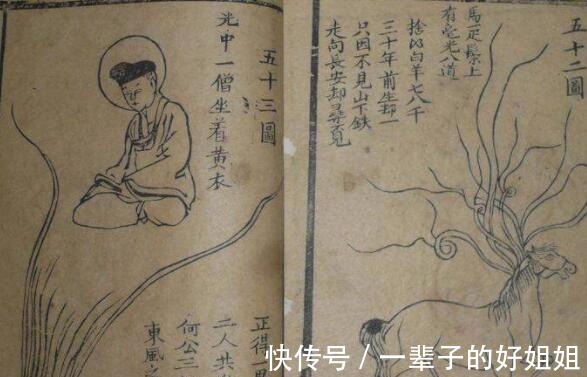 五十二圖
馬疋鬃上
有毫光八道
捨以白羊七八千
三十年前生却一
只因不見山下鉄
走向長安却尋覓
五十三圖
光中一僧坐着黃衣
正得
二人共
何公三
東風之
快传号 / 一辈子的好姐姐